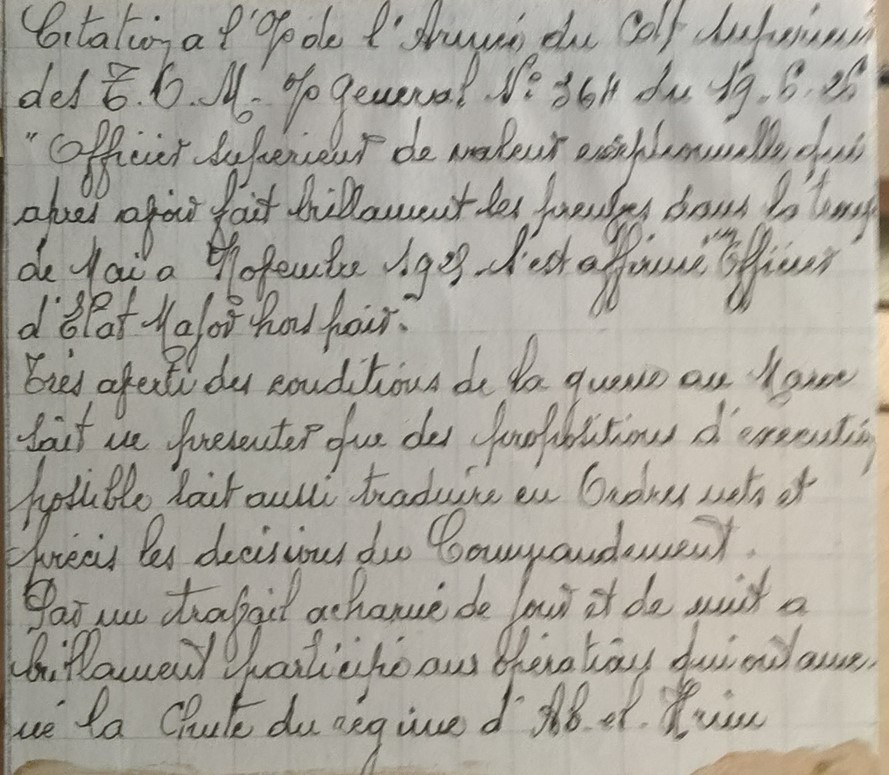 Citation a l'O/o de l'Armée du Cdt Superieur
des T.O.M. O/o General N° 364 du 19.6.26
"Officier Superieur de valeur exceptionnelle qui
apres avoir fait brillament ses preuves dans la
de Mai a Novembre 1925 s'est affirmé "Officier
d'Etat Major hors pair."
Très averti des conditions de la guerre au Maroc
sait ne presenter que des propositions d'executions
possible sait aussi traduire en Ordres nets et
précis les decisions du Commandement.
Par un travail acharné de jour et de nuit a
brillament participé aus opérations qui ont ame-
né la Chute du régime d'Ab-el-Krim